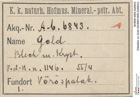 K. k. naturh. Hofmus. Mineral.-petr. Abt.
Akq.-Nr. A.b. 6843.
Name Gold
Blech u. Kryst.
Fundort Vöröspatak.